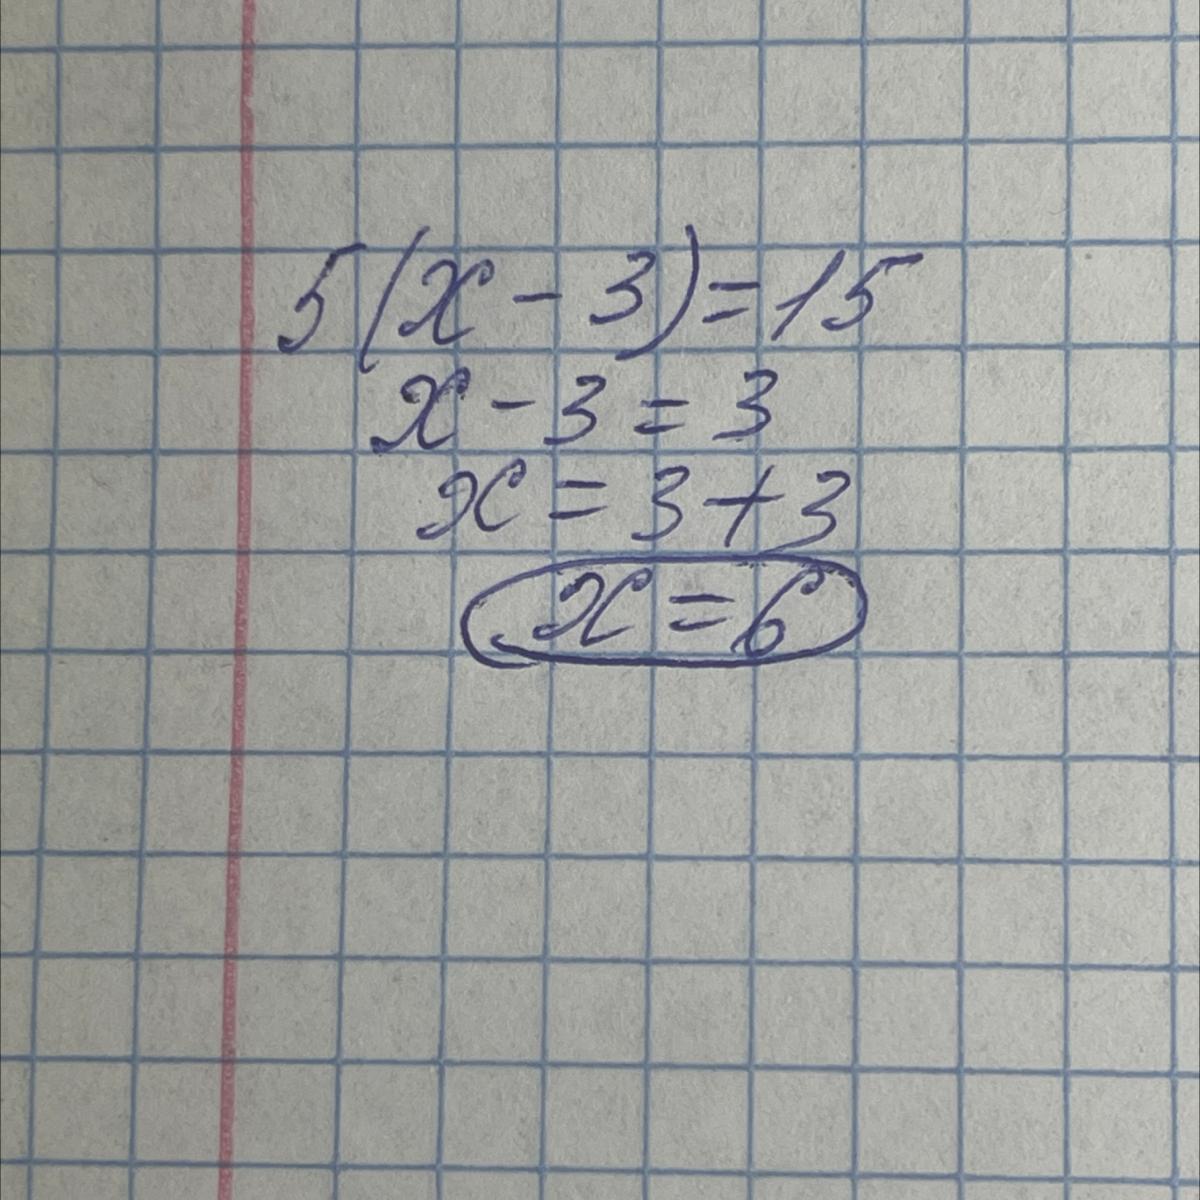 5(x - 3) = 15
x - 3 = 3
x = 3 + 3
x = 6